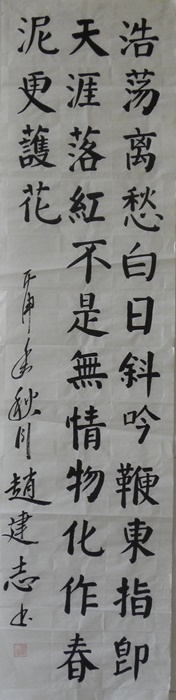 浩荡离愁白日斜吟鞭東指即
天涯落紅不是無情物化作春
泥更護花
丙申年秋月趙建志书